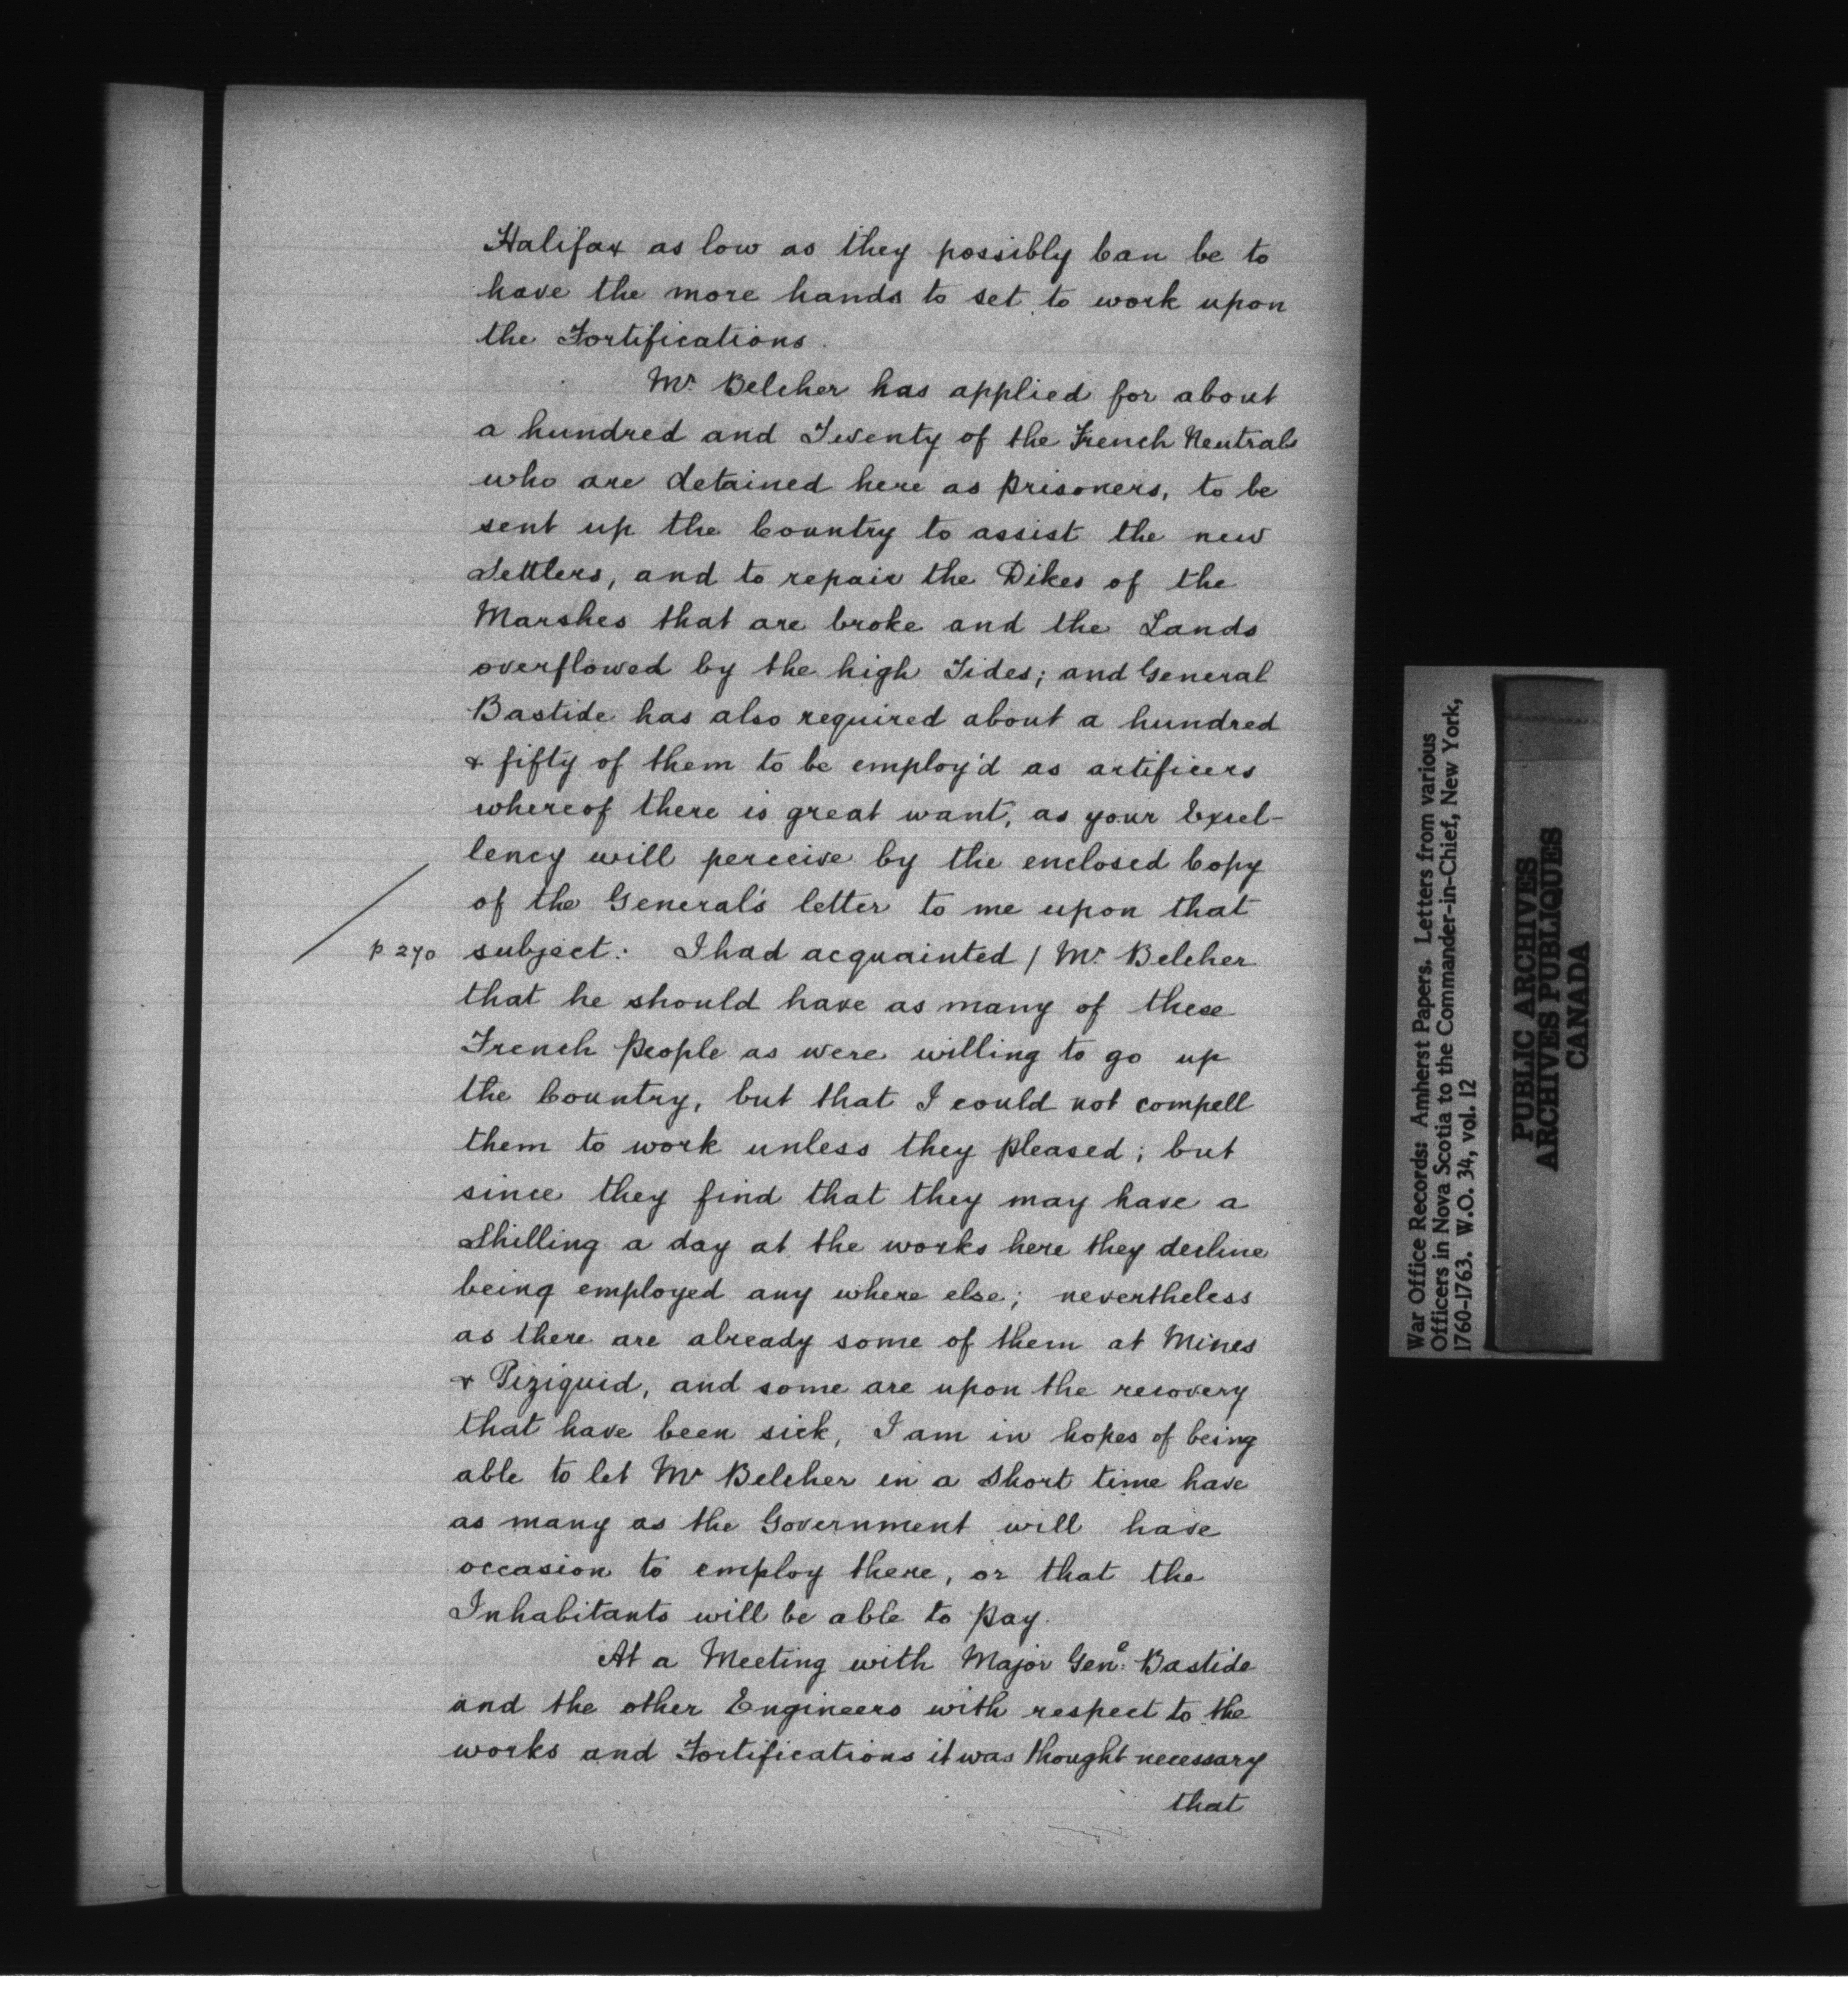 Halifax as low as they possibly Can be to
have the more hands to set to work upon
the Fortifications.
Mr. Belcher has applied for about
a hundred and Twenty of the French Neutrals
who are detained here as prisoners, to be
sent up the Country to assist the new
Settlers, and to repair the Dikes of the
Marshes that are broke and the Lands
overflowed by the high Tides; and General
Bastide has also required about a hundred
& fifty of them to be employ'd as artificers
whereof there is great want, as your Excel-
lency will perceive by the enclosed Copy
of the General's letter to me upon that
p 270 subject: I had acquainted / Mr. Belcher
that he should have as many of these
French people as were willing to go up
the Country, but that I could not compell
them to work unless they pleased; but
since they find that they may have a
Shilling a day at the works here they decline
being employed any where else; nevertheless
as there are already some of them at Mines
& Piziquid, and some are upon the recovery
that have been sick, I am in hopes of being
able to let Mr Belcher in a short time have
as many as the Government will have
occasion to employ there, or that the
Inhabitants will be able to pay.
At a Meeting with Major Genl: Bastide
and the other Engineers with respect to the
works and Fortifications it was thought necessary
that
War Office Records: Amherst Papers. Letters from various
Officers in Nova Scotia to the Commander-in-Chief, New York,
1760-1763. W.O. 34, vol. 12
PUBLIC ARCHIVES
ARCHIVES PUBLIQUES
CANADA